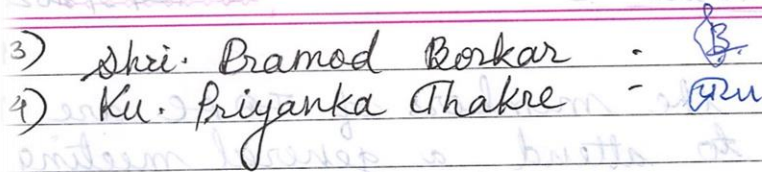 3) Shri. Pramod Borkar -
4) Ku. Priyanka Thakre -